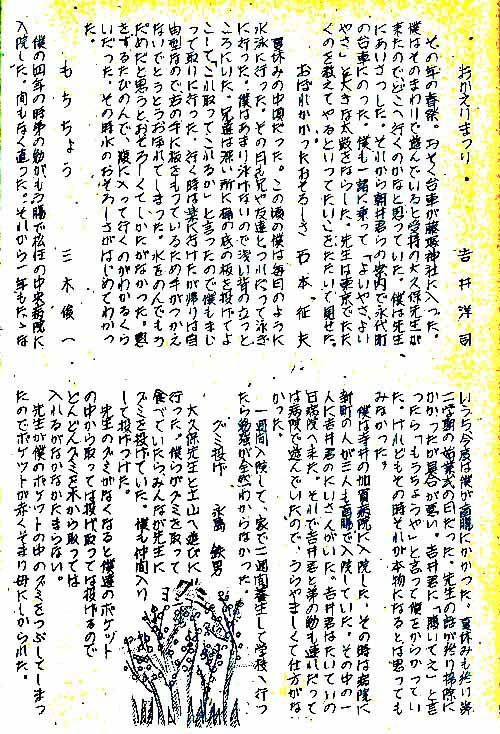 おかえりまつり　吉井洋司
その年の春祭。おそく台車が藤塚神社に入った。
僕はそのまわりで遊んでいると受持の大久保先生が
来たので、どこへ行くのかなと思っていた。僕は先生
にあいさつした。それから朝井君らの案内で永代町
の台車にのった。僕も一緒に乗って「よいやさ、よい
やさ」と大きな太鼓をならした。先生は東京でたた
くのを教えてやるといってたいこをたたいて見せた。
おぼれかかったおそろしさ　石本征夫
夏休みの中頃だった。この頃の僕は毎日のように
水泳に行った。その日も兄や友達とつれだって泳ぎ
に行った。僕はあまり泳げないので浅い背の立つと
ころにいた。兄達は深い所に桶の底の板を投げてよ
こして「これ取ってこれるか」と言ったので僕もまじ
って取りに行った。行く時は楽に行けたが帰りは自
由型なので右の手に板をもっているため手がつかえ
ないでとうとうおぼれてしまった。水をのんでもう
だめだと思うとおそろしくてしかたがなかった。息
をするたびのんで、腹に入って行くのがわかるくら
いだった。その時水のおそろしさがはじめてわかっ
た。
もうちょう　三木俊一
僕の四年の時弟の勤がもう腸で松任の中央病院に
入院した。間もなく直った。それから一年もたゝな
いうち、今度は僕が盲腸にかかった。夏休みも終り第
二学期の始業式の日だった。先生の話が終り掃除に
かかったが具合が悪い。吉井君に「腹いてえ」と言
ったら「もうちょうや」と言って僕をからかってい
た。けれどもその時それが本物になるとは思っても
みなかった。
僕は寺井の加賀病院に入院した。その時は病院に
新町の人が三人も盲腸で入院していた。その中の一
人に吉井君のにいさんがいた。吉井君はたいていの
日病院へ来た。それで吉井君と弟の勤も連れだって
は病院で遊んでいたので、うらやましくて仕方がな
かった。
一週間入院して、家で二週間養生して学校へ行っ
たら勉強が全然わからなかった。
グミ投げ　永嶌鉄男
大久保先生と土山へ遊びに
行った。僕らがグミを取って
食べていたらみんなが先生に
グミを投げていた。僕も仲間入り
して投げつけた。
先生のグミがなくなると僕達のポケット
の中から取っては投げ取っては投げるので
どんどんグミを木から取っては
入れるがなかなかたまらない。
先生が僕のポケットの中のグミをつぶしてしまっ
たのでポケットが赤くそまり母にしかられた。